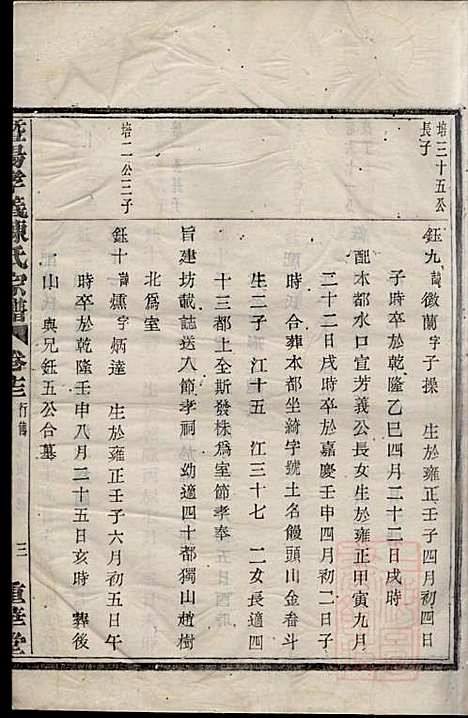 培三十五公
長子
鈺九 諱徵蘭字子操 生於雍正壬子四月初四日
子時卒於乾隆乙巳四月二十二日戌時
配本都水口宣芳義公長女生於雍正甲寅九月
二十二日戌時卒於嘉慶壬申四月初二日子
時 合葬本都坐綺字號土名饅頭山金畚斗
生二子 江十五 江三十七 二女長適四
十三都上全斯發株爲室節孝奉
旨建坊載誌送入節孝祠 幼適四十都獨山趙樹
北爲室
培二公三子
鈺十 諱燻字炳達 生於雍正壬子六月初五日午
時卒於乾隆壬申八月二十五日亥時 葬後
山 與兄鈺五公合墓
暨陽孝義陳氏宗譜
行傳
三
重華堂